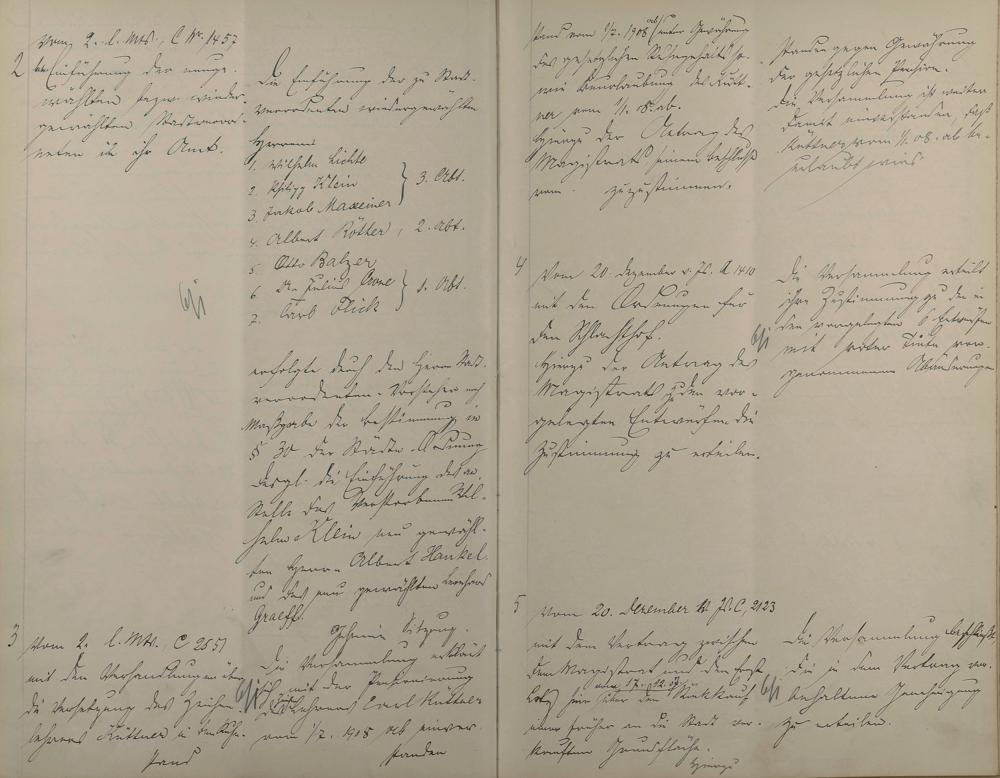 2
Vom 2. l. Mts., C Nr. 1457
Einführung der neuge-
wählten bezw. wieder-
gewählten Stadtverord-
neten in ihr Amt.
Die Einführung der zu Stadt-
verordneten wiedergewählten
Herren
1. Wilhelm Lichte
2. Philipp Klein
3. Jakob Maxeiner
3. Abt.
4. Albert Röther, 2. Abt.
5. Otto Balzer
6. Dr. Julius
7. Carl Flick
1. Abt.
erfolgte durch den Herrn Stadt-
verordneten-Vorsteher nach
Maßgabe der Bestimmung in
§ 30 der Städte-Ordnung
desgl. die Einführung des an
Stelle des verstorbenen Wil-
helm Klein neu gewähl-
ten Herrn Albert Hankel
und des neu gewählten Leonhard
Graeff.
3
Vom 2. l. Mts. C 2551
mit den Verhandlungen über
die Versetzung des Zeichen-
lehrers Küttner in den Ruhe-
stand
Geheime Sitzung.
Die Versammlung erklärt
sich mit der Pensionierung
des Lehrers Carl Küttner
vom 1/7. 1908 ab einver-
standen
stand vom 1/7. 1908 ab (unter Gewährung
des gesetzlichen Ruhegehalts so-
wie Beurlaubung des Kütt-
ner vom 1/1. 08. ab.
Hierzu der Antrag des
Magistrats seinem Beschluß
vom zuzustimmen.
standen gegen Gewährung
der gesetzlichen Pension.
Die Versammlung ist weiter
damit einverstanden, daß
Küttner vom 1/1. 08. ab be-
urlaubt wird
4
Vom 20. Dezember v. Js. A 1410
mit den Ordnungen für
den Schlachthof.
Hierzu der Antrag des
Magistrats zu den vor-
gelegten Entwürfen die
Zustimmung zu erteilen.
Die Versammlung erteilt
ihre Zustimmung zu den in
den vorgelegten 6 Entwürfen
mit roter Tinte vor-
genommenen Abänderungen
5
Vom 20. Dezember v. Js. C, 2123
mit dem Vertrag zwischen
dem Magistrat und den
17. 12. 07 Rückkauf
einer früher an die Stadt ver-
kauften Grundfläche.
Hierzu
Die Versammlung beschließt
die in dem Vertrag vor-
behaltene Genehmigung
zu erteilen.